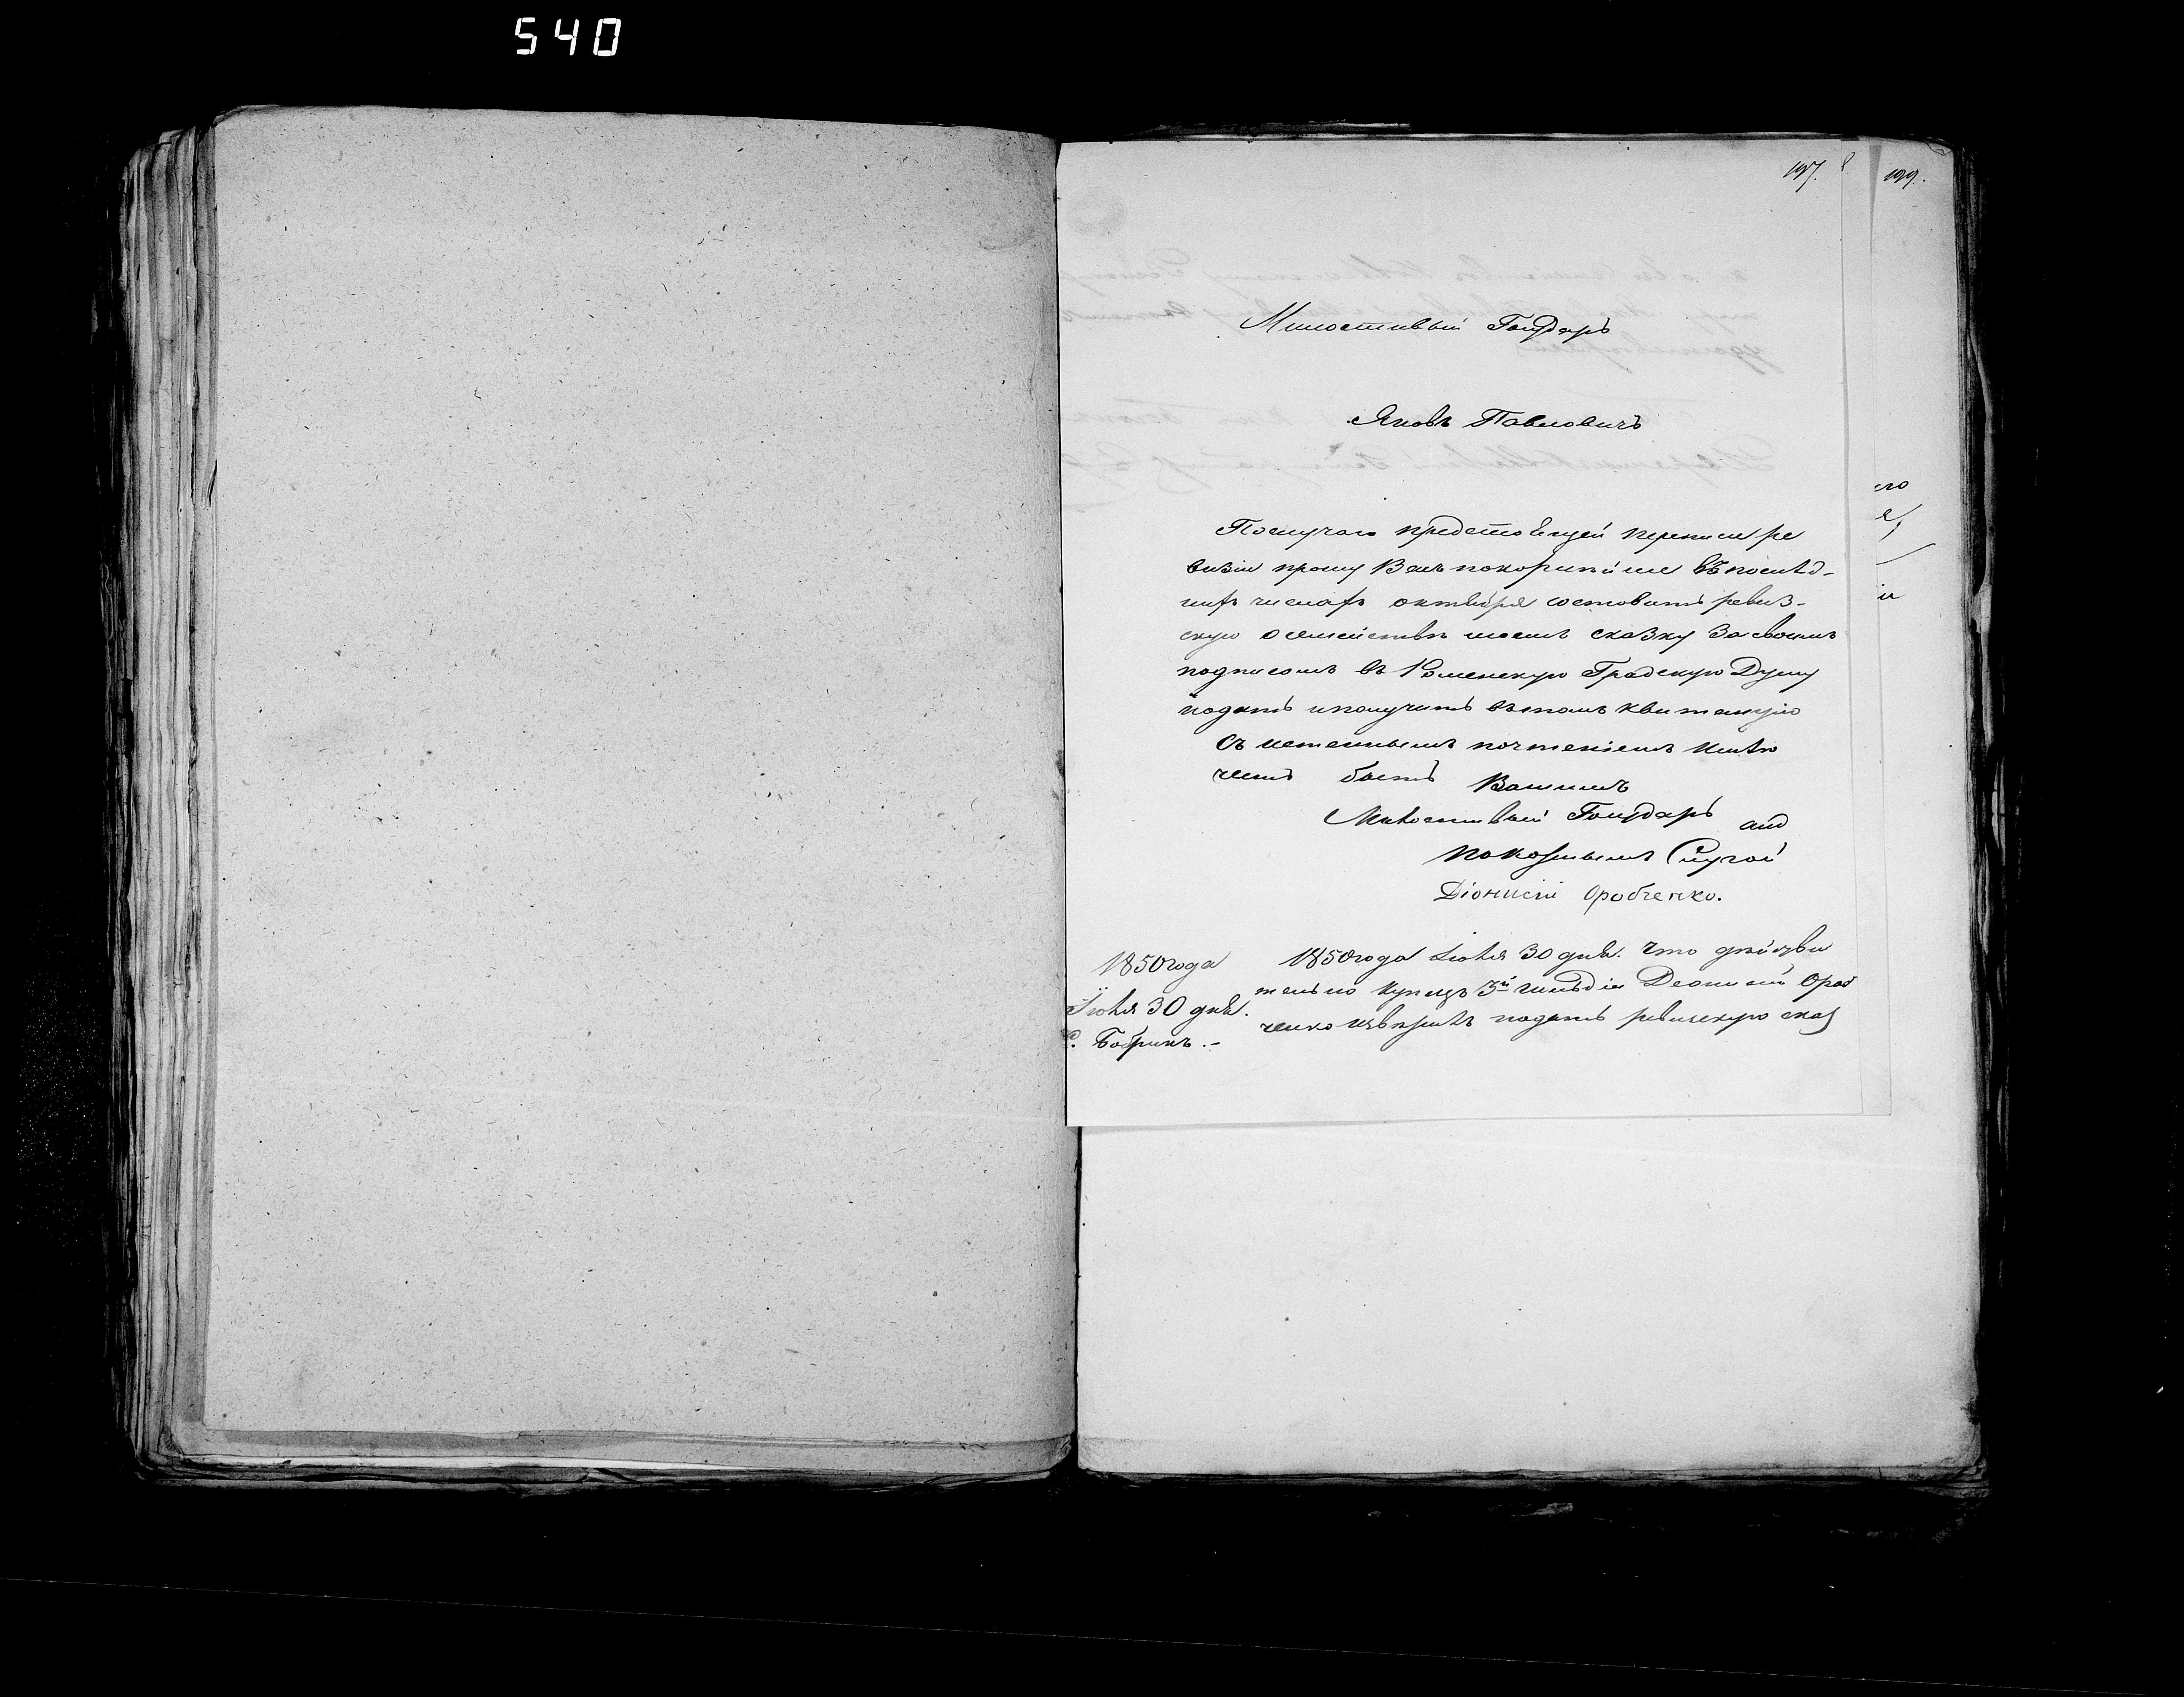 540
197.
199.
Милостивый Государь
Яковъ Павловичъ
По случаю предстоящей переписи ре
визіи прошу Васъ покорнѣйше въ послѣд-
нихъ числахъ октября составить ревиз-
скую о семействѣ моемъ сказку за своимъ
подписомъ въ Роменскую Градскую Думу
подать и получить въ томъ квитанцію
Съ истеннымъ почтеніемъ имѣю
честь быть Вашимъ
Милостивый Государь
покорнымъ Слугой
Діонисій Оробченко.
1850 года
Іюля 30 дня.
С. Бобрикъ.-
1850 года Іюля 30 дня. Что дѣйстви
тельно купецъ 3й гильдіи Деонисій Ороб
ченко ввѣряетъ подать ревизскую сказ
го
я,
и